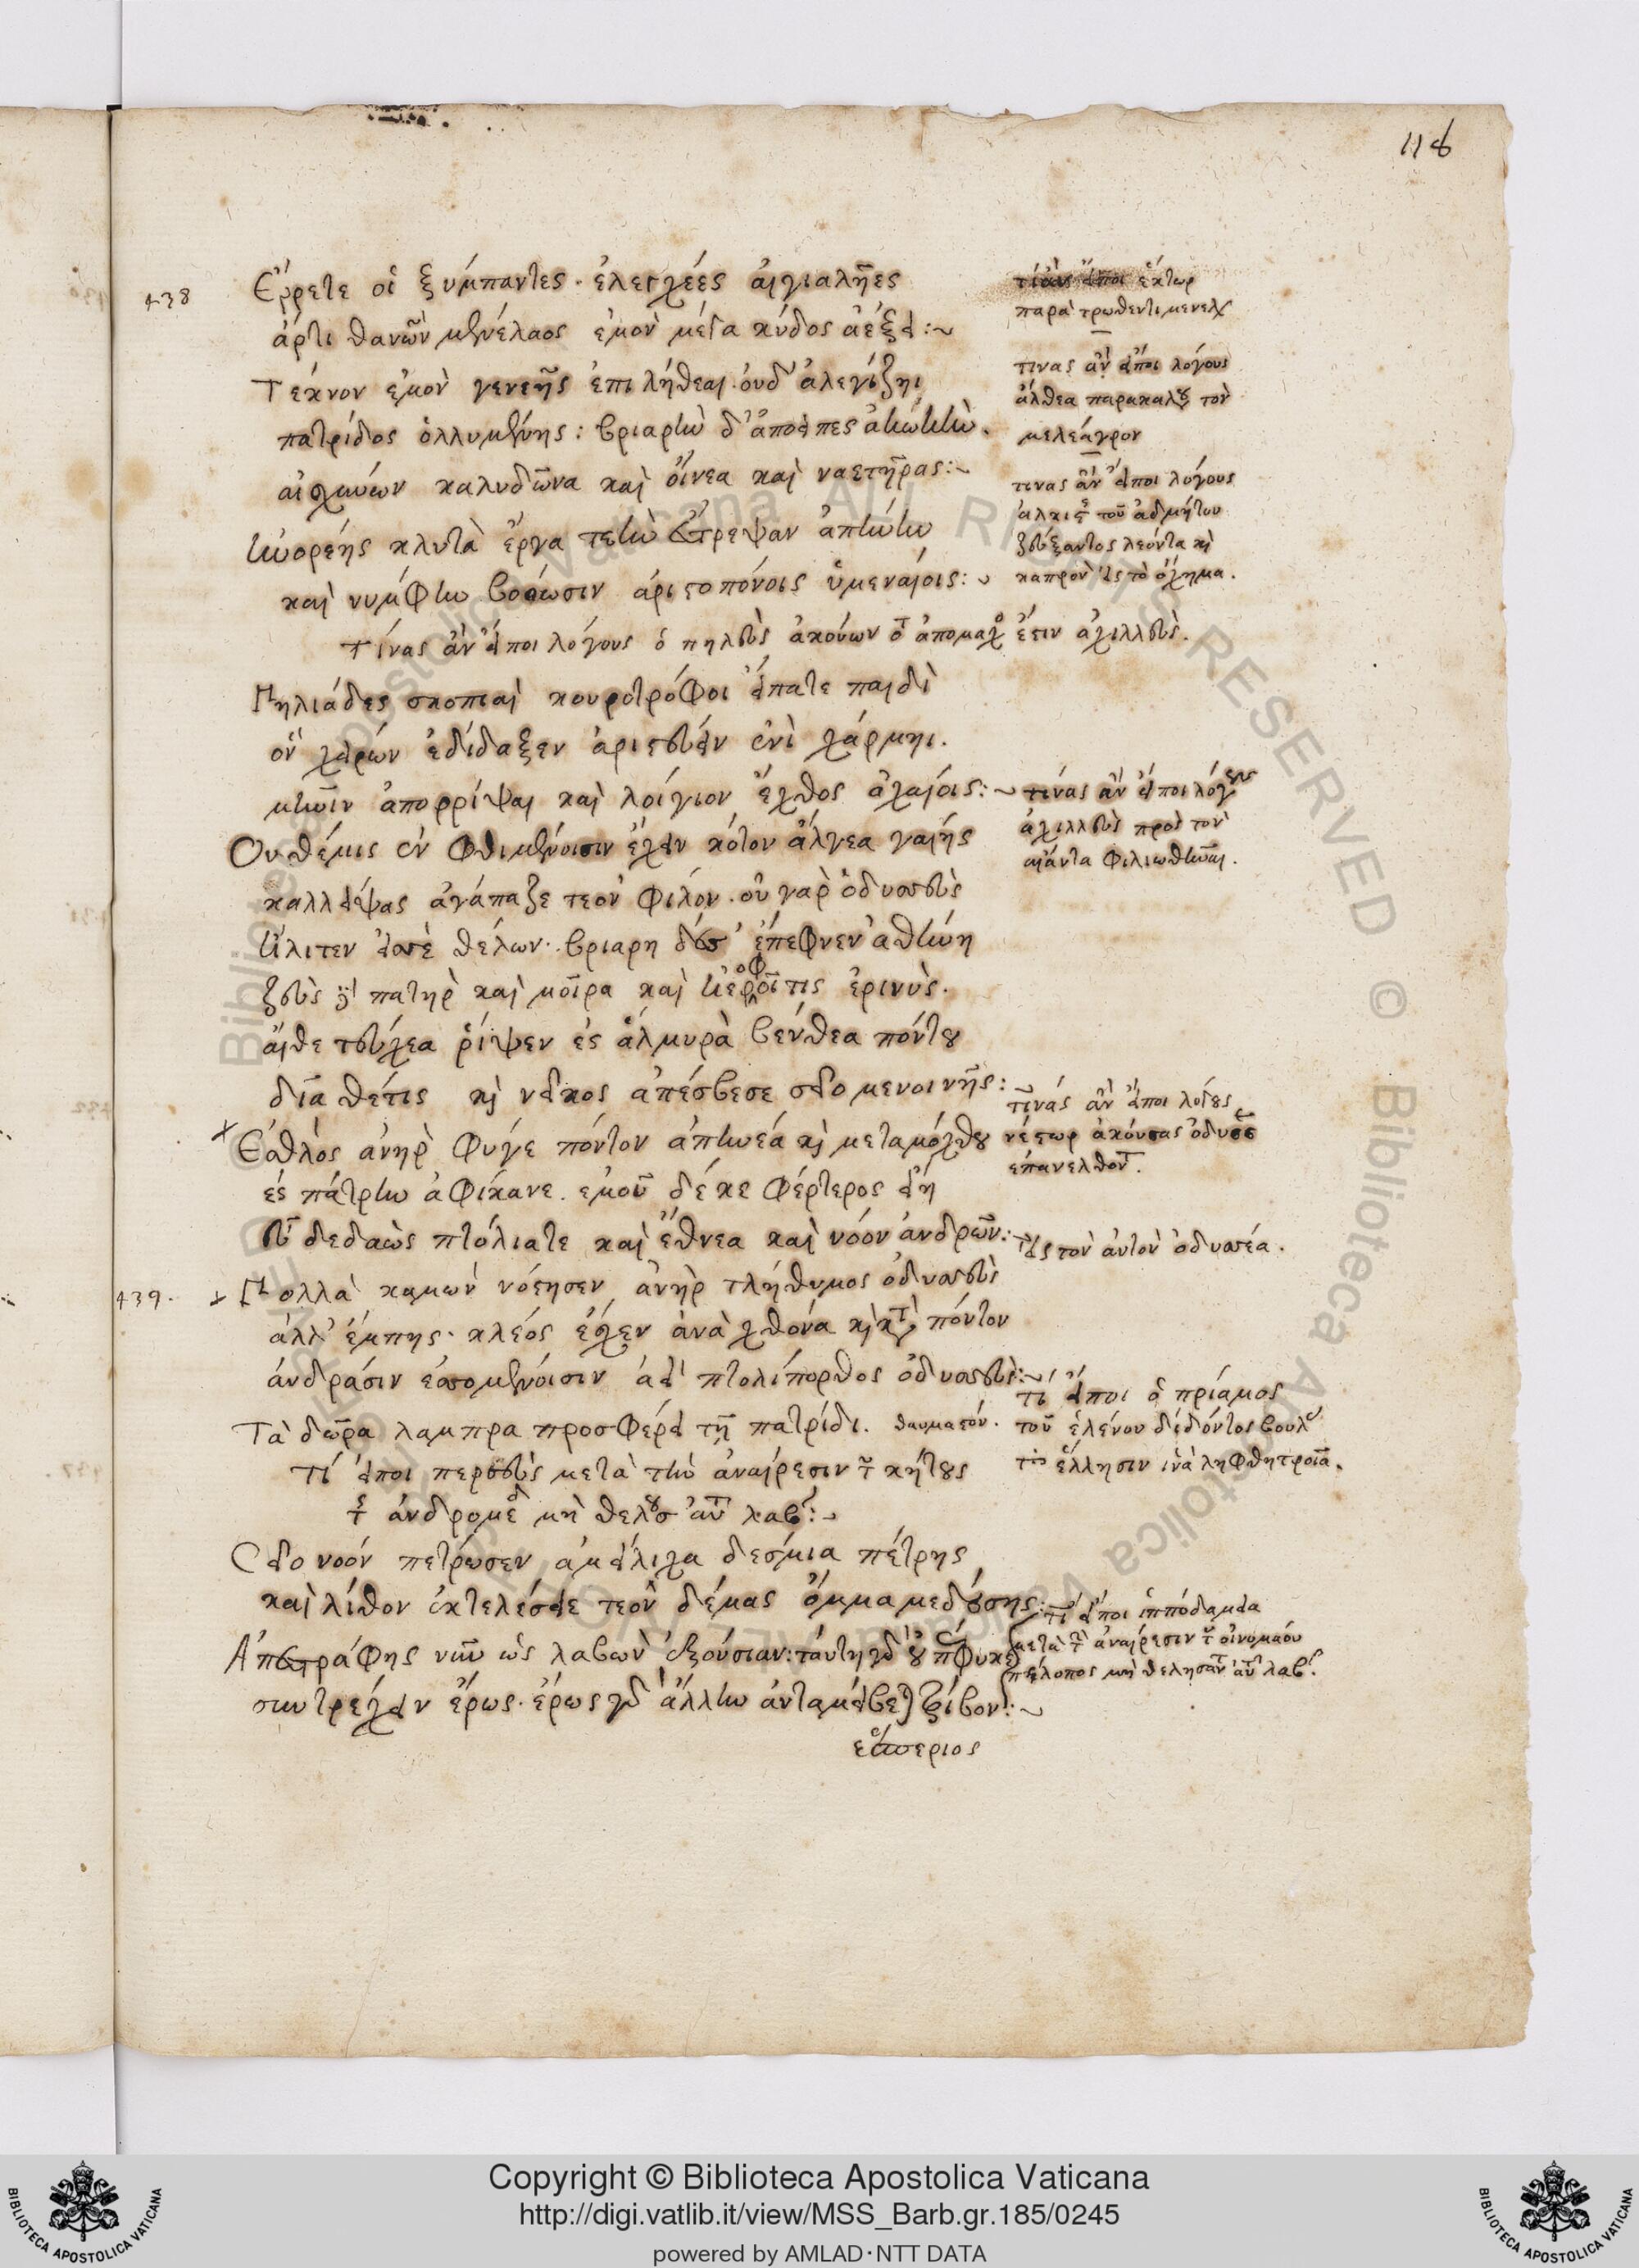 118
438
Ἔρρετε οἱ ξύμπαντες · ἐλεγχέες αἰγιαλῆες
ἄρτι θανὼν μενέλαος ἐμὸν μέγα κύδος ἀέξει :~
Τέκνον ἐμὸν γενεῆς ἐπιλήθεαι · ὀυδ' ἀλεγίζηι
πατρίδος ὀλλυμένης : βριαρὴν δ' ἀπόειπες
καλυδῶνα καὶ ὄινέα καὶ ναετῆρας :~
κλυτὰ ἔργα τεὴν ἔτρεψαν ἀπήνην
καὶ νύμφην βοόωσιν ἀριστοπόνοις ὑμεναίοις :~
τίνας ἂν ἔιποι λόγους ὁ πηλεὺς ἀκούων ὅτι ἀπόμαχός ἐστιν ἀχιλλεύς.
Πηλιάδες σκοπιαὶ κουροτρόφοι ἔιπατε παιδὶ
ὃν χείρων ἐδίδαξεν ἀριστεύειν ἐνὶ χάρμηι.
μῆνιν ἀπορρίψαι καὶ λοίγιον ἔχθος ἀχαιοῖς :~
Ου θέμις ἐν φθιμένοισιν ἔχειν κότον ἄλγεα γαίης
καλλείψας ἀγάπαζε τεὸν φίλον · οὐ γὰρ ὀδυσσεὺς
ἤλιτεν εἰσὲ θέλων · βριαρη δέ σ' ἔπεφνεν ἀθήνη
ζεὺς πατὴρ καὶ μοῖρα καὶ ἠεροφοῖτις ἐρινύς.
ἄιθε τεύχεα ῥίψεν ἐς ἁλμυρὰ βένθεα πόντου
δῖα θέτις καὶ νεῖκος ἀπέσβεσε σεῖο μενοινῆς :
Ἐσθλὸς ἀνὴρ φύγε πόντον ἀπηνέα καὶ μετὰ μόχθου
ἐς πάτρην ἀφίκανε. ἐμοῦ δέ κε φέρτερος εἴη
εὖ δεδαὼς πτόλιάτε καὶ ἔθνεα καὶ νόον ἀνδρῶν :
439.
Πολλὰ καμὼν νόησεν ἀνὴρ τλήθυμος ὀδυσσεὺς
ἀλλ' ἔμπης · κλέος ἔσχεν ἀνὰ χθόνα καὶ κατὰ πόντον
ἀνδράσιν ἐσσομένοισιν ἀεὶ πτολίπορθος ὀδυσσεύς :~
Τὰ δῶρα λαμπρα προσφέρει τῇ πατρίδι. θαυμαστόν.
τί ἔιποι περσεὺς μετὰ τὴν ἀναίρεσιν τοῦ κήτους
τῆς ἀνδρομέδας μὴ θελούσης αὐτὸν λαβεῖν :~
Σεῖο νοόν πέτρωσεν ἀμείλιχα δέσμια πέτρης
καὶ λίθον ἐκτελέσειε τεὸν δέμας ὄμμα μεδούσης :
Ἀπεστράφης νῦν ὡς λαβὼν ἐξουσίαν : ταύτη γὰρ οὐ πέφυκε
συντρέχειν ἔρως · ἔρως γὰρ ἄλλην ἀνταμείβεται τρίβον :~
ἑσπέριος
ἕκτωρ
παρατρωθέντι μενελάῳ
τινας ἂν ἔιποι λόγους
ἀλθέα παρακαλοῦσα τὸν
μελέαγρον
τινας ἂν ἔιποι λόγους
ἄλκιστις τοῦ ἀδμήτου
ζεύξαντος λέοντα καὶ
καπρὸν εἰς τὸ ὄχημα.
τίνας ἂν ἔιποι λόγους
ἀχιλλεὺς πρὸς τὸν
αἴαντα φιλιωθῆναι.
τίνας ἂν ἔιποι λόγους
νέστωρ ἀκούσας ὀδυσσέως
ἐπανελθόντος.
εἰς τὸν ἀυτὸν ὀδυσσέα.
τί ἔιποι ὁ πρίαμος
τοῦ ἑλένου διδόντος βουλὴν
τοῖς ἕλλησιν ἵνα ληφθῇ τροία.
τί ἔιποι ἱπποδάμεια
μετὰ τὴν ἀναίρεσιν τοῦ οἰνομάου
πέλοπος μὴ θελήσαντος αὐτὴν λαβεῖν.
Copyright © Biblioteca Apostolica Vaticana
http://digi.vatlib.it/view/MSS_Barb.gr.185/0245
powered by AMLAD·NTT DATA
BIBLIOTECA APOSTOLICA VATICANA
BIBLIOTECA APOSTOLICA VATICANA